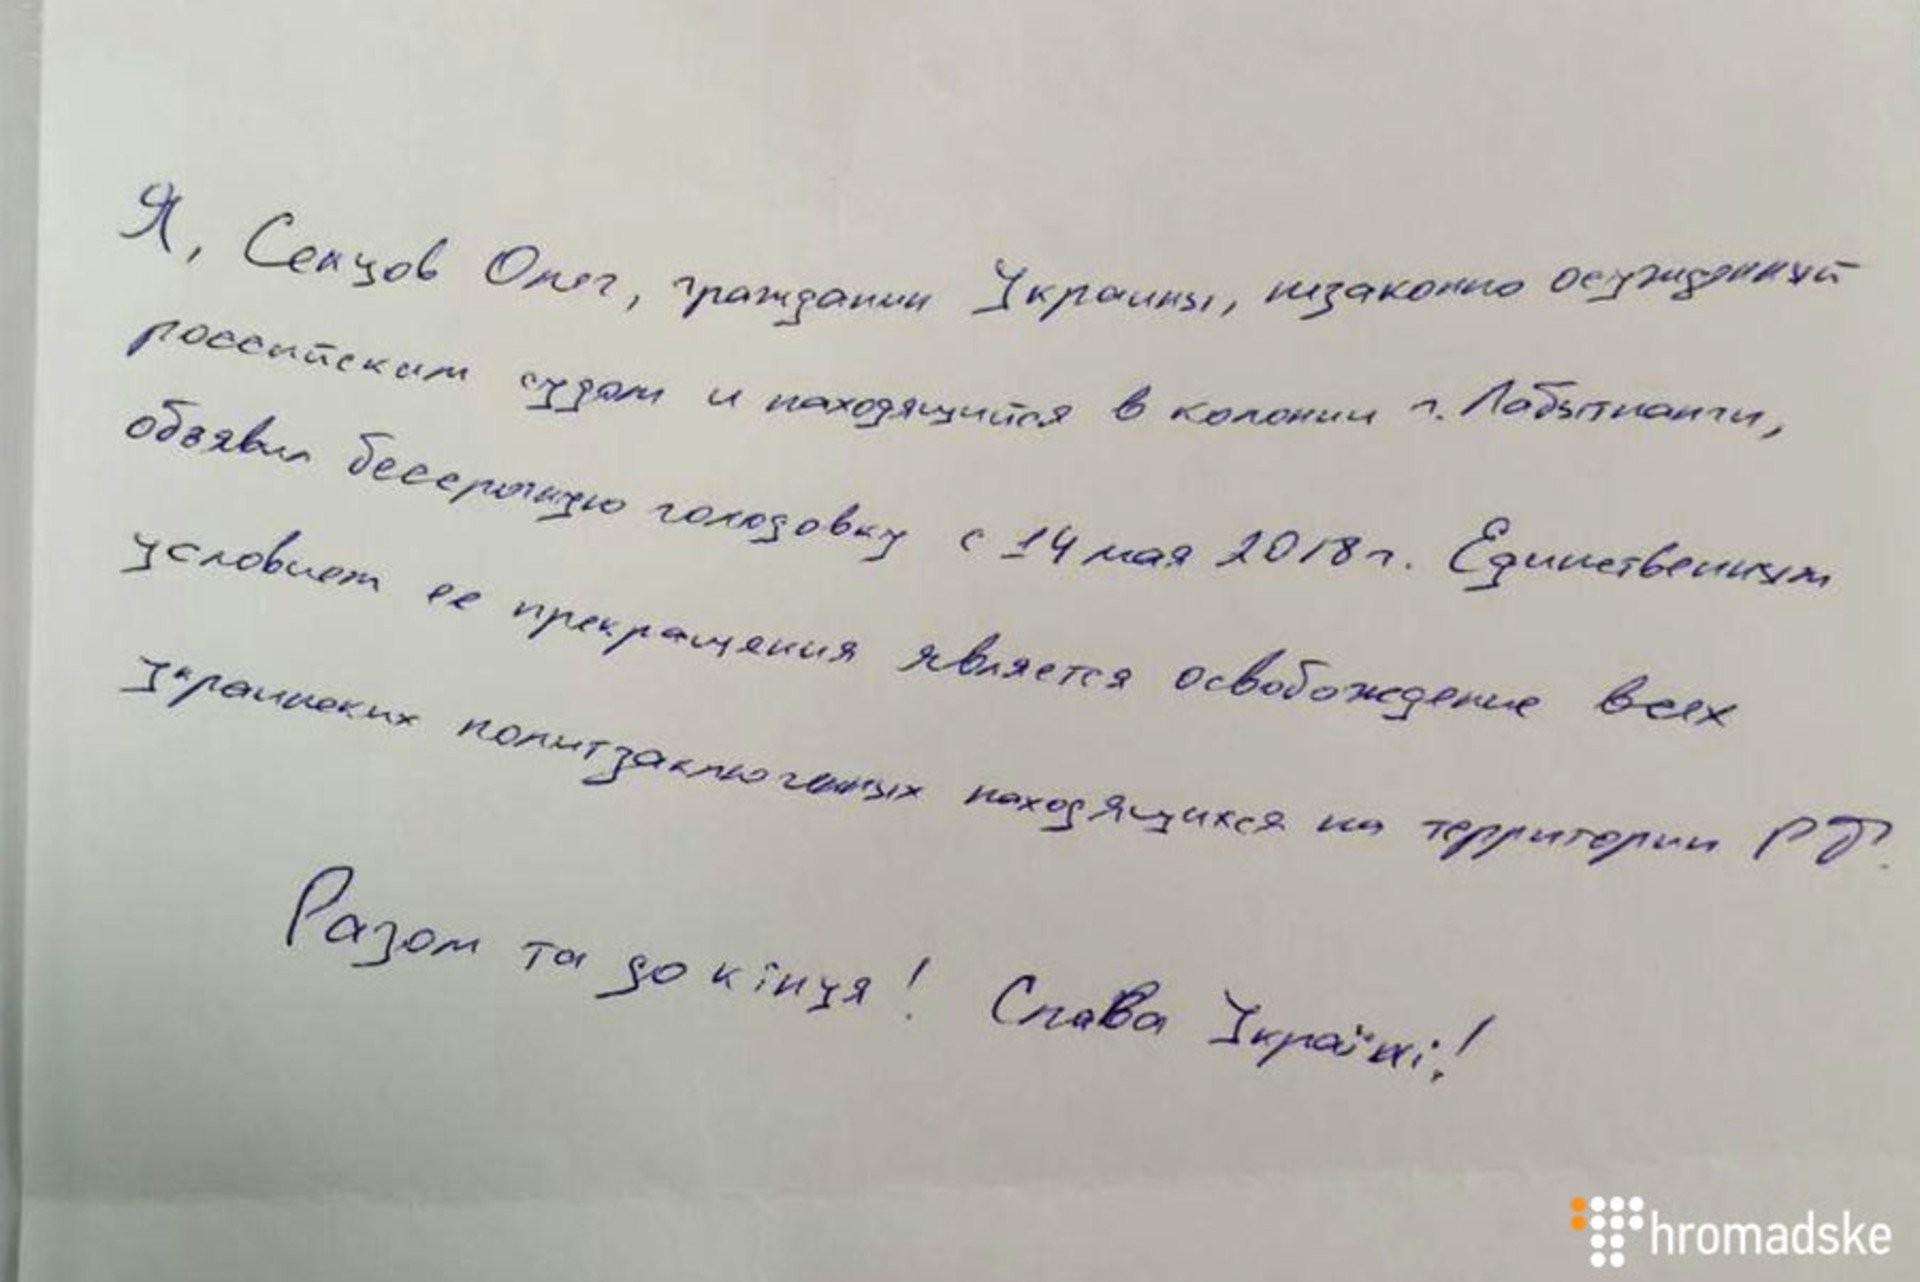 Я, Сенцов Олег, гражданин Украины, незаконно осужденный
российским судом и находящийся в колонии г. Лабытнанги,
объявил бессрочную голодовку с 14 мая 2018 г. Единственным
условием ее прекращения является освобождение всех
украинских политзаключенных находящихся на территории РФ.
Разом та до кінця! Слава Україні!
hromadske